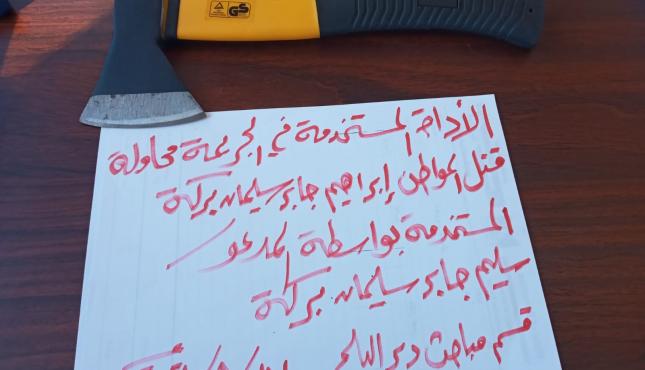 GS
الأداة المستخدمة في الجريمة محاولة
قتل المواطن إبراهيم جابر سليمان بركة
المستخدمة بواسطة المدعو /
سليم جابر سليمان بركة
قسم مباحث دير البلح